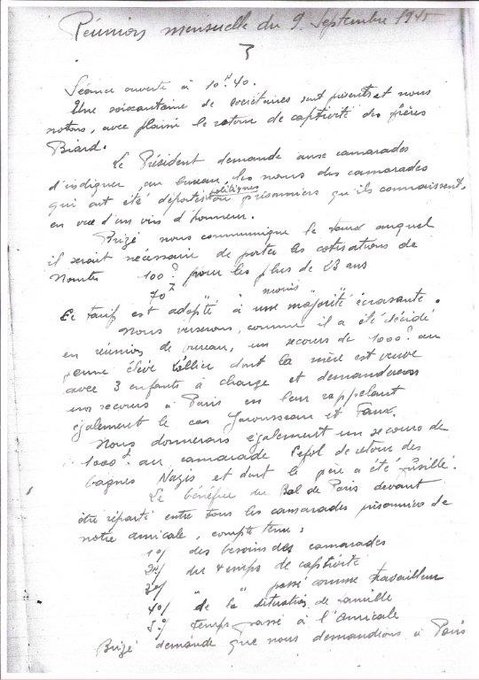 Réunion mensuelle du 9 Septembre 1945
Séance ouverte à 10H40.
Une soixantaine de sociétaires sont présents et nous
notons, avec plaisir le retour de captivité des frères
Biard.
Le Président demande aux camarades
d'indiquer au bureau, les noms des camarades
politiques
qui ont été déportés ou prisonniers qu'ils connaissent,
en vue d'un vin d'honneur.
Brizé nous communique le taux auquel
il serait nécessaire de porter les cotisations de
Nantes 100 pour les plus de 18 ans
70 " moins "
Ce tarif est adopté à une majorité écrasante.
Nous verserons, comme il a été décidé
en réunion de bureau, un secours de 1000 au
jeune élève Tallier dont la mère est veuve
avec 3 enfants à charge et demanderons
un secours à Paris en leur rappelant
également le cas Jarousseau et Faux.
Nous donnerons également un secours de
1000 au camarade Pefol de retour des
bagnes Nazis et dont le père a été fusillé.
Le bénéfice du Bal de Paris devant
être réparti entre tous les camarades prisonniers de
notre amicale, compte tenu:
1°/ des besoins des camarades
2°/ du temps de captivité
3°/ " " passé comme travailleur
4°/ de la situation de famille
5°/ temps passé à l'amicale
Brizé demande que nous demandions à Paris